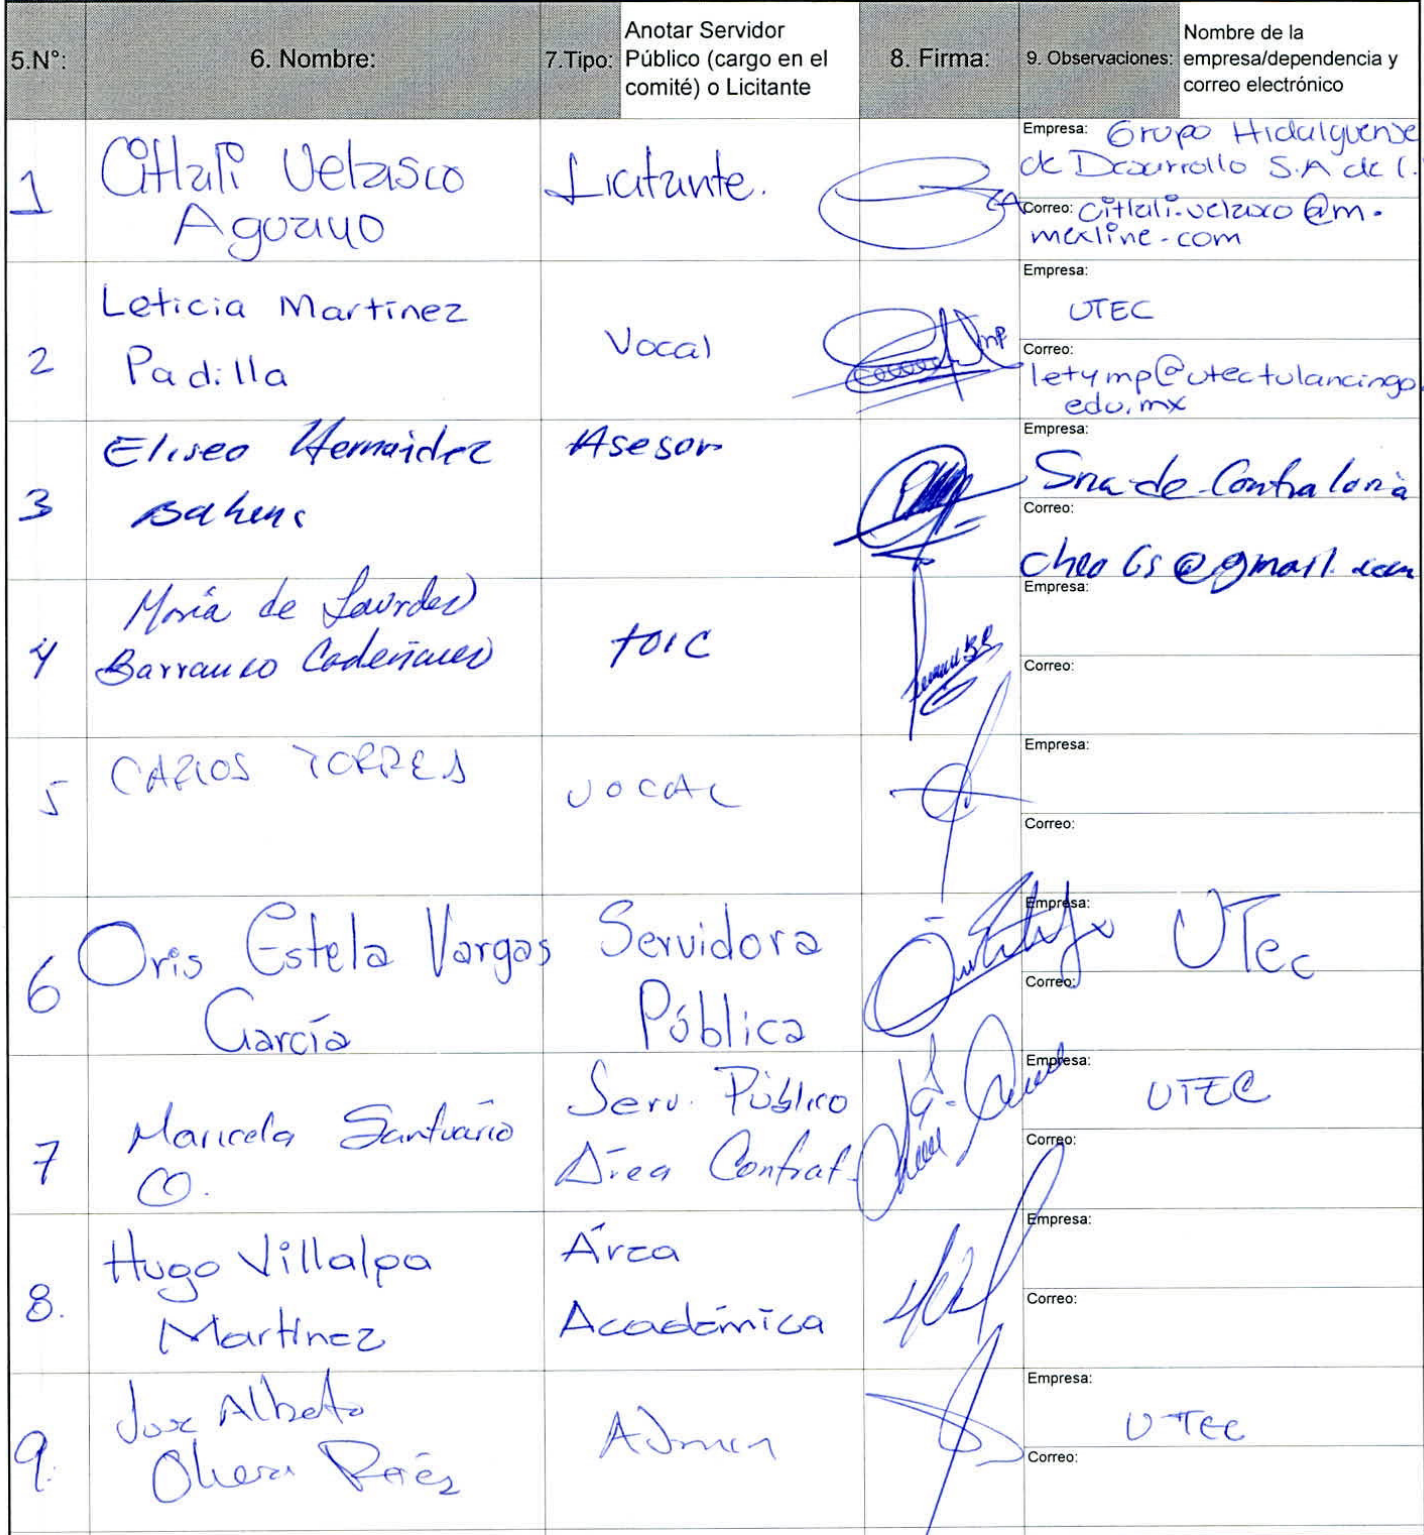 5.N°:
6. Nombre:
7.Tipo:
Anotar Servidor
Público (cargo en el
comité) o Licitante
8. Firma:
9. Observaciones:
Nombre de la
empresa/dependencia y
correo electrónico
1
Citlali Velasco
Aguayo
Licitante.
Empresa: Grupo Hidalguense
de Desarrollo S.A de C.
Correo: citlali.velazco@m.
mexline.com
2
Leticia Martínez
Padilla
Vocal
Empresa:
UTEC
Correo:
letymp@utectulancingo.
edu.mx
3
Eliseo Hernández
Bahena
Asesor
Empresa:
Sria de Contraloria
Correo:
@gmail.com
4
María de Lourdes
Barranco
TOIC
Empresa:
Correo:
5
CARLOS TORRES
VOCAL
Empresa:
Correo:
6
Oris Estela Vargas
García
Servidora
Pública
Empresa:
UTec
Correo:
7
Maricela Santuario
O.
Serv. Público
Área Contrat.
Empresa:
UTEC
Correo:
8.
Hugo Villalpa
Martínez
Área
Académica
Empresa:
Correo:
9.
José Alberto
Olvera
Admon
Empresa:
UTEC
Correo: